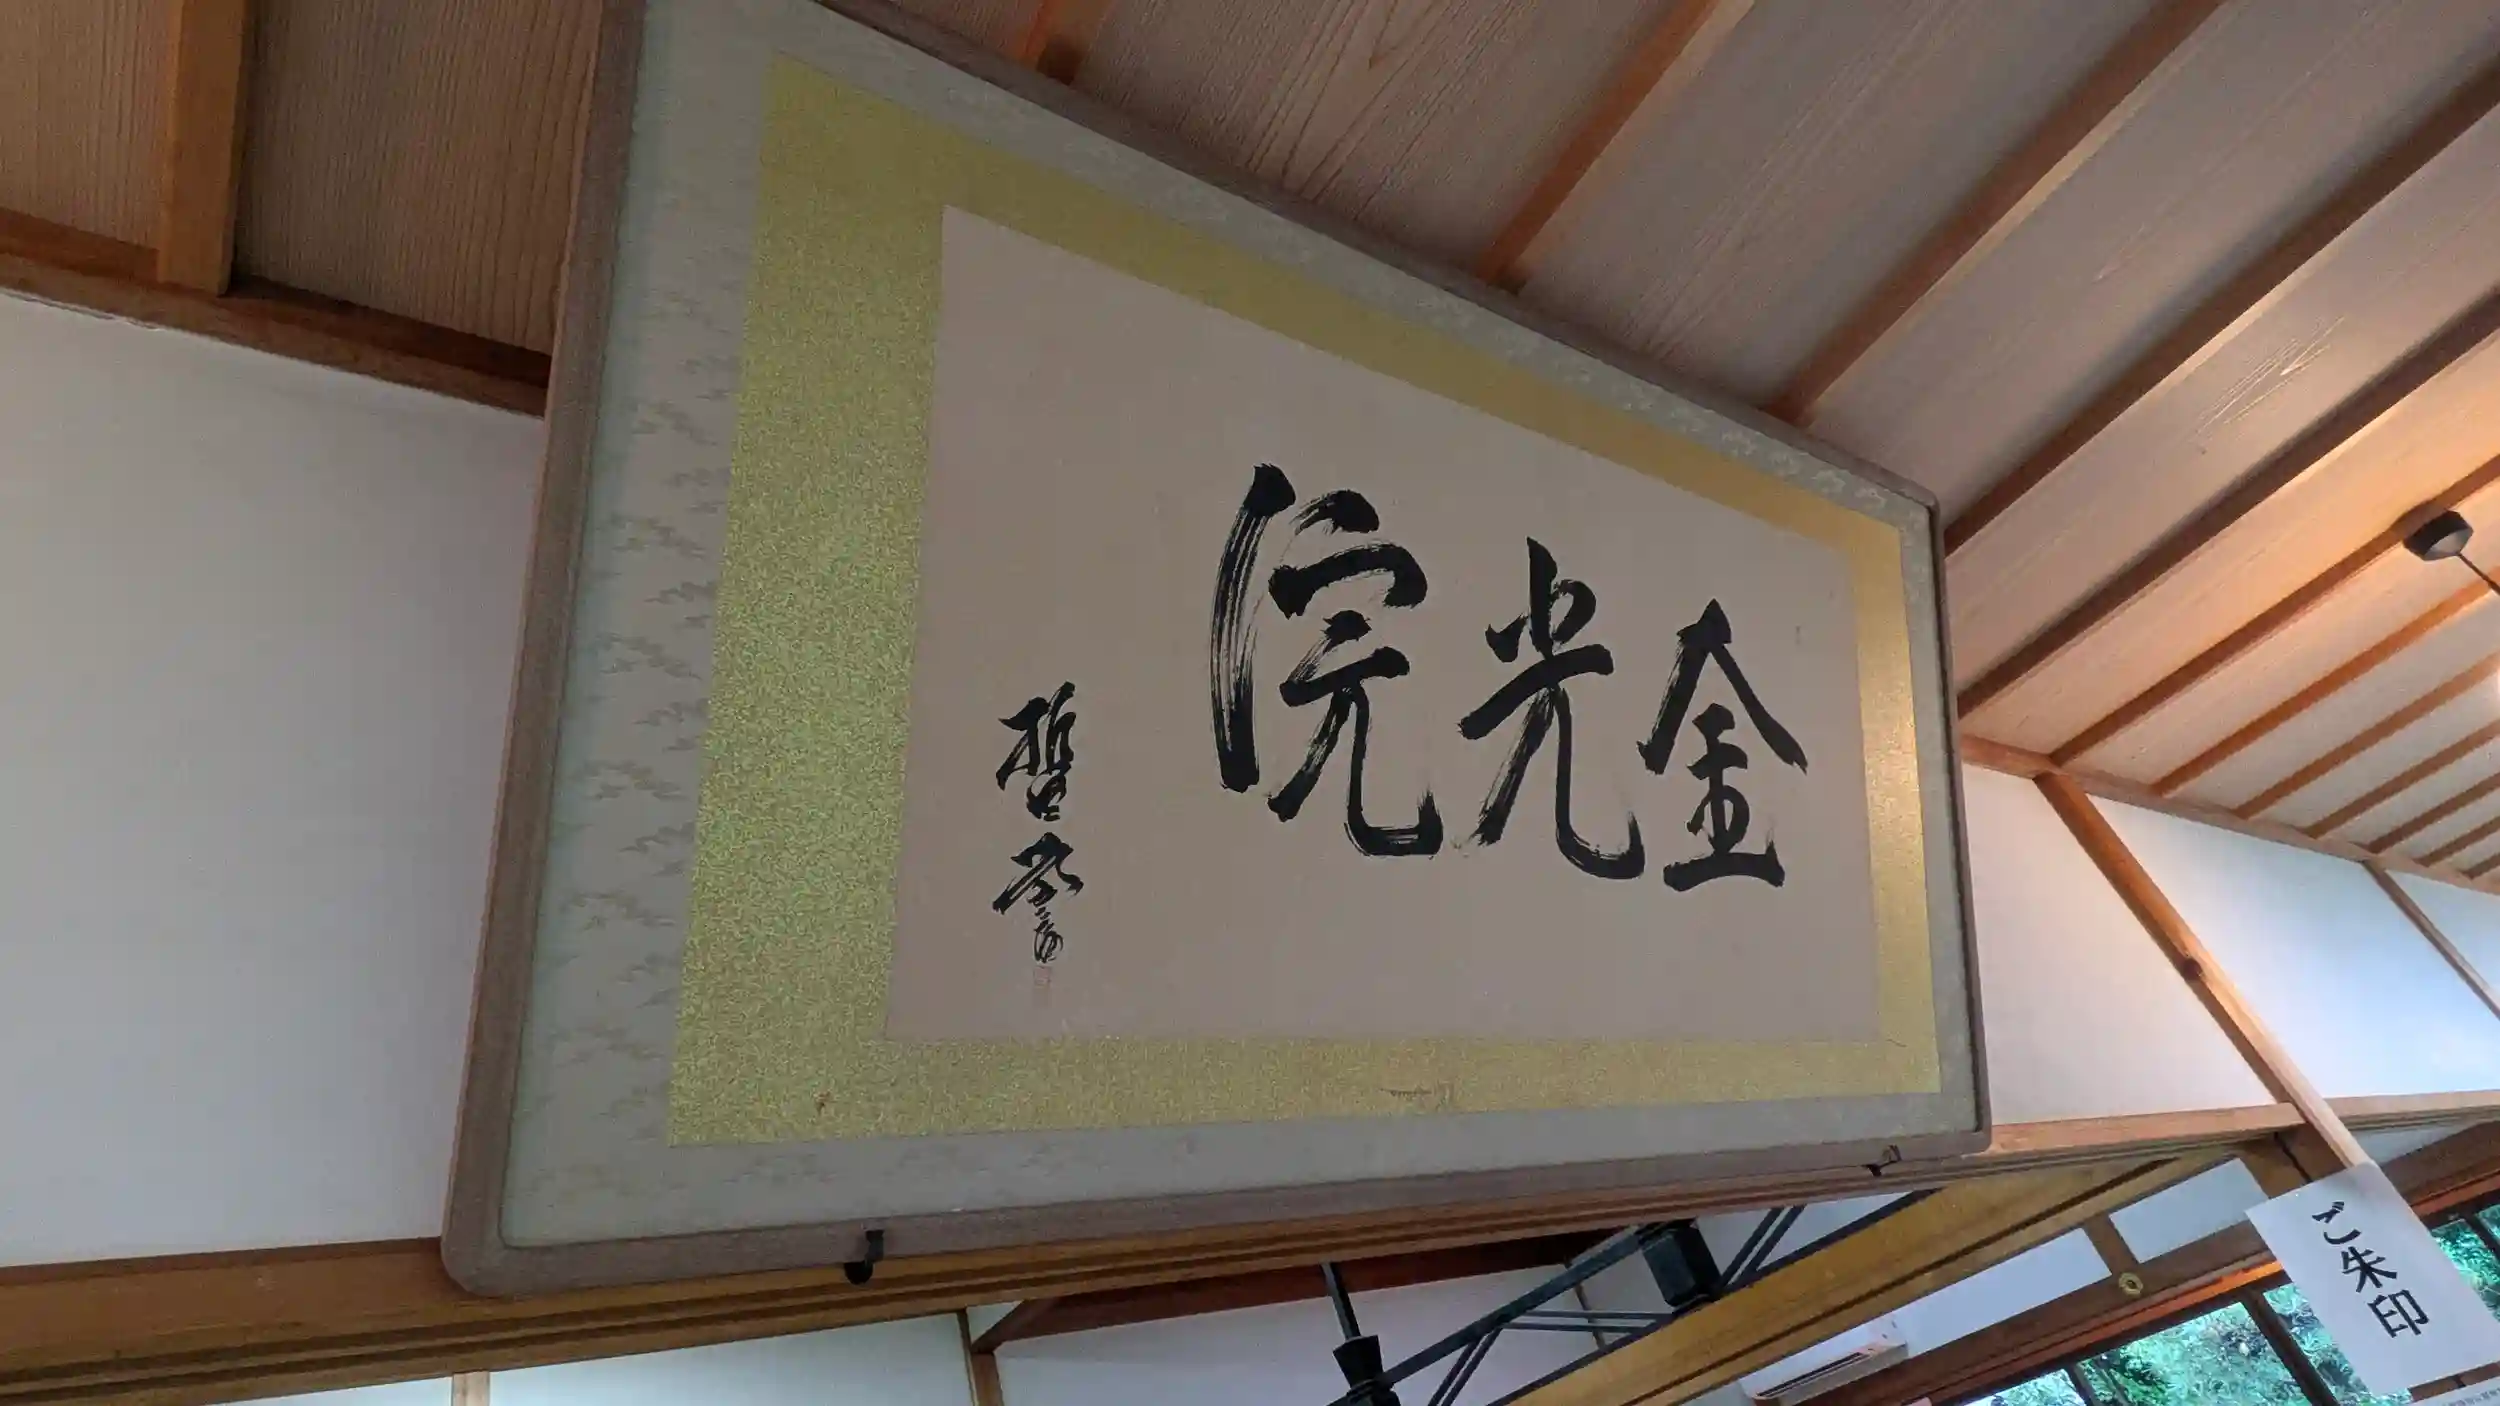 金光院
ご朱印